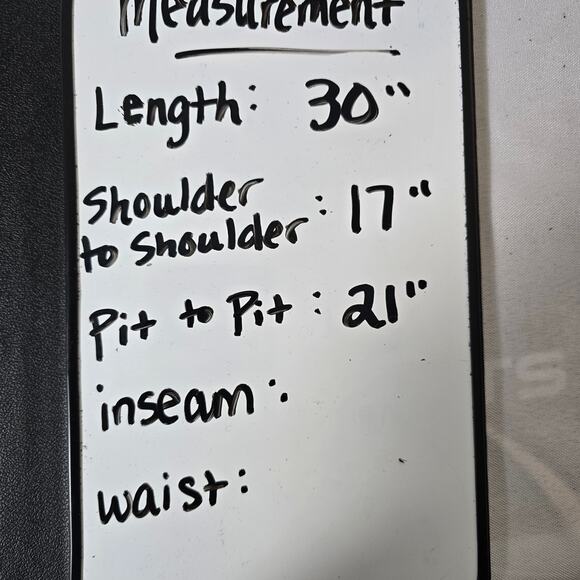 Measurement
Length: 30"
Shoulder
to Shoulder: 17"
Pit to Pit: 21"
inseam:
waist: